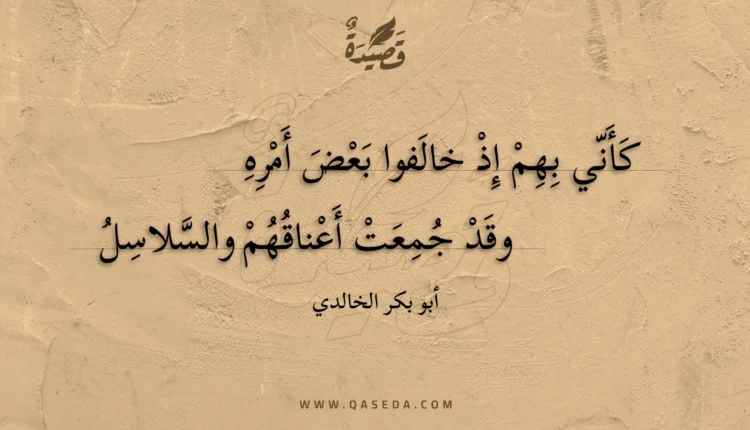 قَصِيدَةٌ
كَأَنّي بِهِمْ إِذْ خالَفوا بَعْضَ أَمْرِهِ
وقَدْ جُمِعَتْ أَعْناقُهُمْ والسَّلاسِلُ
أبو بكر الخالدي
WWW.QASEDA.COM